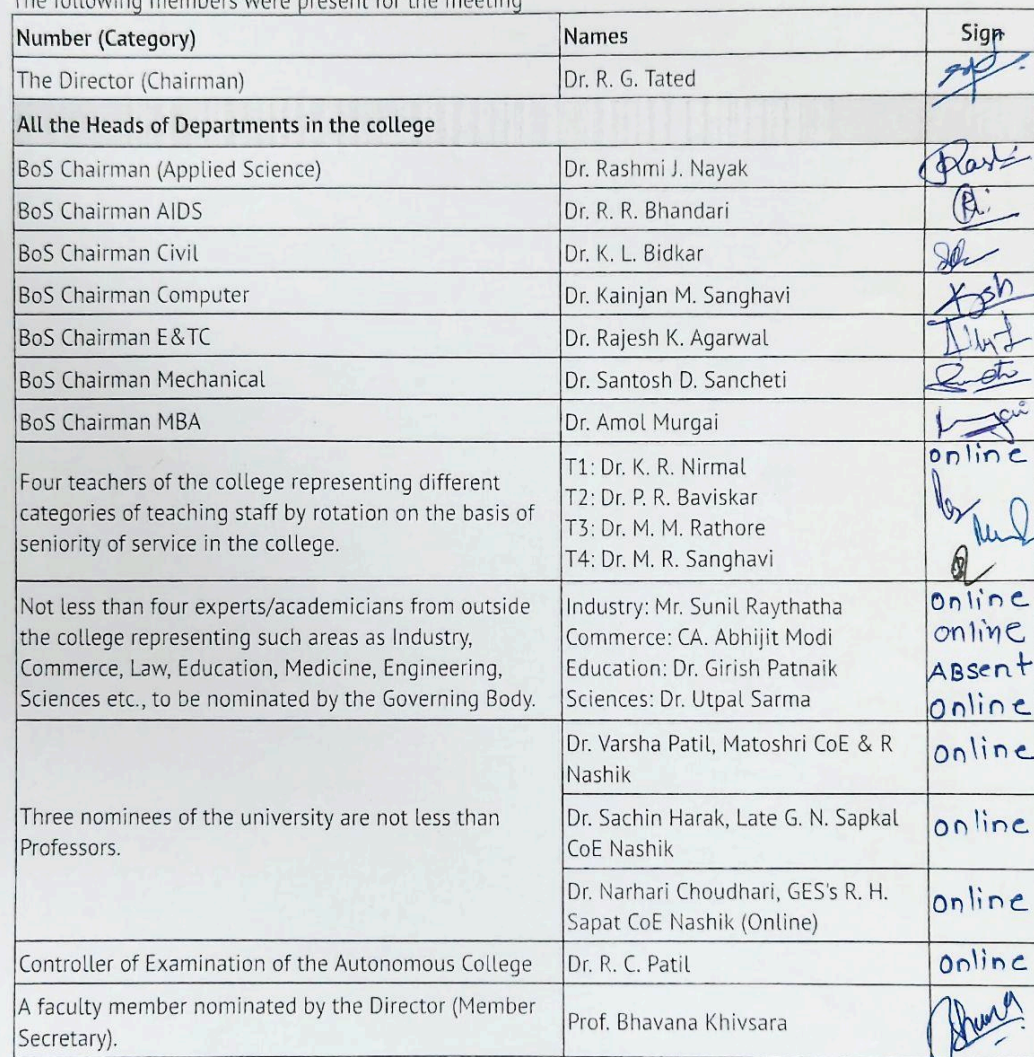 The following members were present for the meeting
Number (Category) Names Sign
The Director (Chairman) Dr. R. G. Tated
All the Heads of Departments in the college
BoS Chairman (Applied Science) Dr. Rashmi J. Nayak
BoS Chairman AIDS Dr. R. R. Bhandari
BoS Chairman Civil Dr. K. L. Bidkar
BoS Chairman Computer Dr. Kainjan M. Sanghavi
BoS Chairman E&TC Dr. Rajesh K. Agarwal
BoS Chairman Mechanical Dr. Santosh D. Sancheti
BoS Chairman MBA Dr. Amol Murgai
Four teachers of the college representing different
categories of teaching staff by rotation on the basis of
seniority of service in the college.
T1: Dr. K. R. Nirmal online
T2: Dr. P. R. Baviskar
T3: Dr. M. M. Rathore
T4: Dr. M. R. Sanghavi
Not less than four experts/academicians from outside
the college representing such areas as Industry,
Commerce, Law, Education, Medicine, Engineering,
Sciences etc., to be nominated by the Governing Body.
Industry: Mr. Sunil Raythatha online
Commerce: CA. Abhijit Modi online
Education: Dr. Girish Patnaik ABsent
Sciences: Dr. Utpal Sarma online
Three nominees of the university are not less than
Professors.
Dr. Varsha Patil, Matoshri CoE & R online
Nashik
Dr. Sachin Harak, Late G. N. Sapkal online
CoE Nashik
Dr. Narhari Choudhari, GES's R. H. online
Sapat CoE Nashik (Online)
Controller of Examination of the Autonomous College Dr. R. C. Patil online
A faculty member nominated by the Director (Member
Secretary).
Prof. Bhavana Khivsara